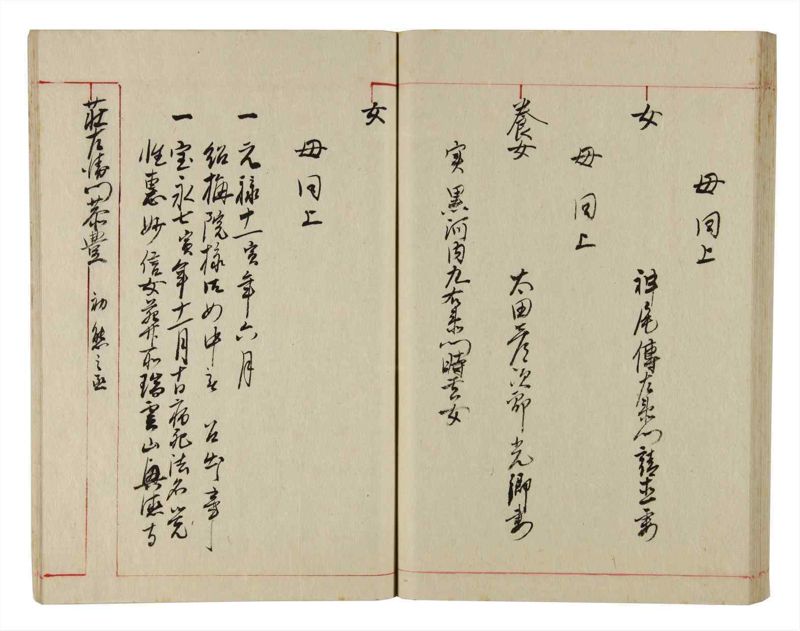 母同上
女
神尾傳左衛門請直妻
母同上
養女
太田彦次郎光卿妻
実黒河内九右衛門時
女
母同上
一元禄十一寅年六月
紹梅院様
一宝永七寅年十一月十日病死法名覚
性惠妙信女葬所瑞雲山興徳寺
荘左衛門恭豊 初熊之丞